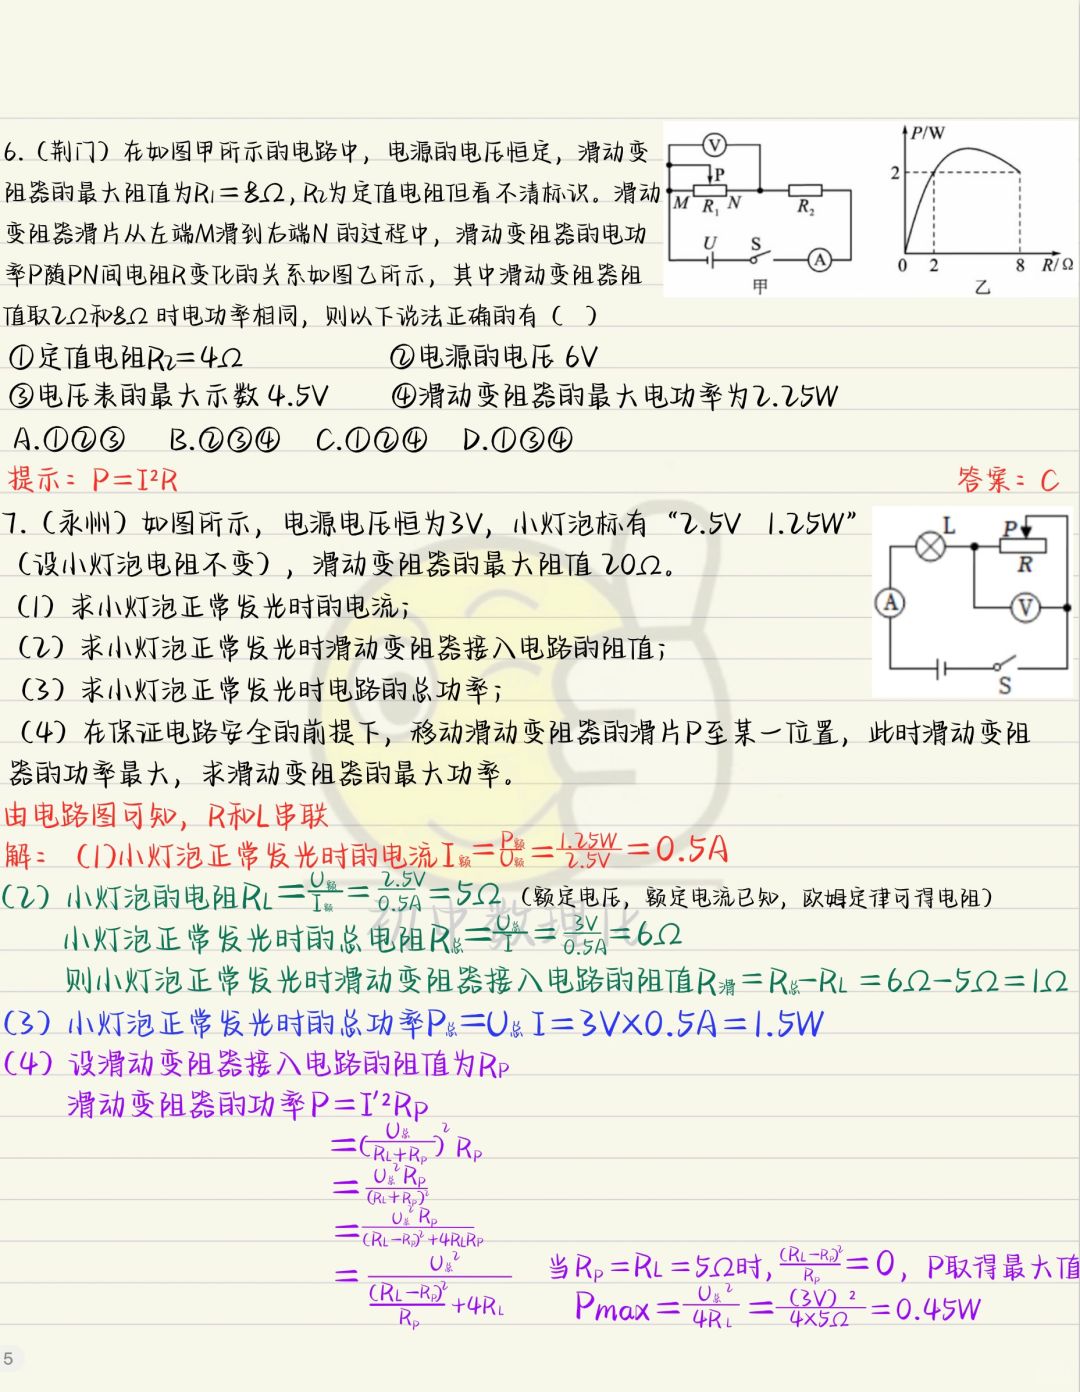 6.（荆门）在如图甲所示的电路中，电源的电压恒定，滑动变
阻器的最大阻值为R₁=8Ω,R₂为定值电阻但看不清标识。滑动
变阻器滑片从左端M滑到右端N的过程中，滑动变阻器的电功
率P随PN间电阻R变化的关系如图乙所示，其中滑动变阻器阻
值取2Ω和8Ω时电功率相同，则以下说法正确的有（ ）
V
P
M R₁ N R₂
U S A
甲
P/W
2
0 2 8 R/Ω
乙
①定值电阻R₂=4Ω ②电源的电压6V
③电压表的最大示数4.5V ④滑动变阻器的最大电功率为2.25W
A.①②③ B.②③④ C.①②④ D.①③④
提示：P=I²R 答案：C
7.（永州）如图所示，电源电压恒为3V，小灯泡标有“2.5V 1.25W”
（设小灯泡电阻不变），滑动变阻器的最大阻值20Ω。
（1）求小灯泡正常发光时的电流；
（2）求小灯泡正常发光时滑动变阻器接入电路的阻值；
（3）求小灯泡正常发光时电路的总功率；
（4）在保证电路安全的前提下，移动滑动变阻器的滑片P至某一位置，此时滑动变阻
器的功率最大，求滑动变阻器的最大功率。
L P
R
A V
S
由电路图可知，R和L串联
解：（1)小灯泡正常发光时的电流I额=P额/U额=1.25W/2.5V=0.5A
（2）小灯泡的电阻RL=U额/I额=2.5V/0.5A=5Ω（额定电压，额定电流已知，欧姆定律可得电阻）
小灯泡正常发光时的总电阻R总=U总/I=3V/0.5A=6Ω
则小灯泡正常发光时滑动变阻器接入电路的阻值R滑=R总-RL=6Ω-5Ω=1Ω
（3）小灯泡正常发光时的总功率P总=U总I=3V×0.5A=1.5W
（4）设滑动变阻器接入电路的阻值为RP
滑动变阻器的功率P=I'²RP
=(U总/(RL+RP))²RP
=U总²RP/(RL+RP)²
=U总²RP/((RL-RP)²+4RLRP)
=U总²/((RL-RP)²/RP+4RL) 当RP=RL=5Ω时,(RL-RP)²/RP=0，P取得最大值
Pmax=U总²/4RL=(3V)²/4×5Ω=0.45W
初中数理化
5